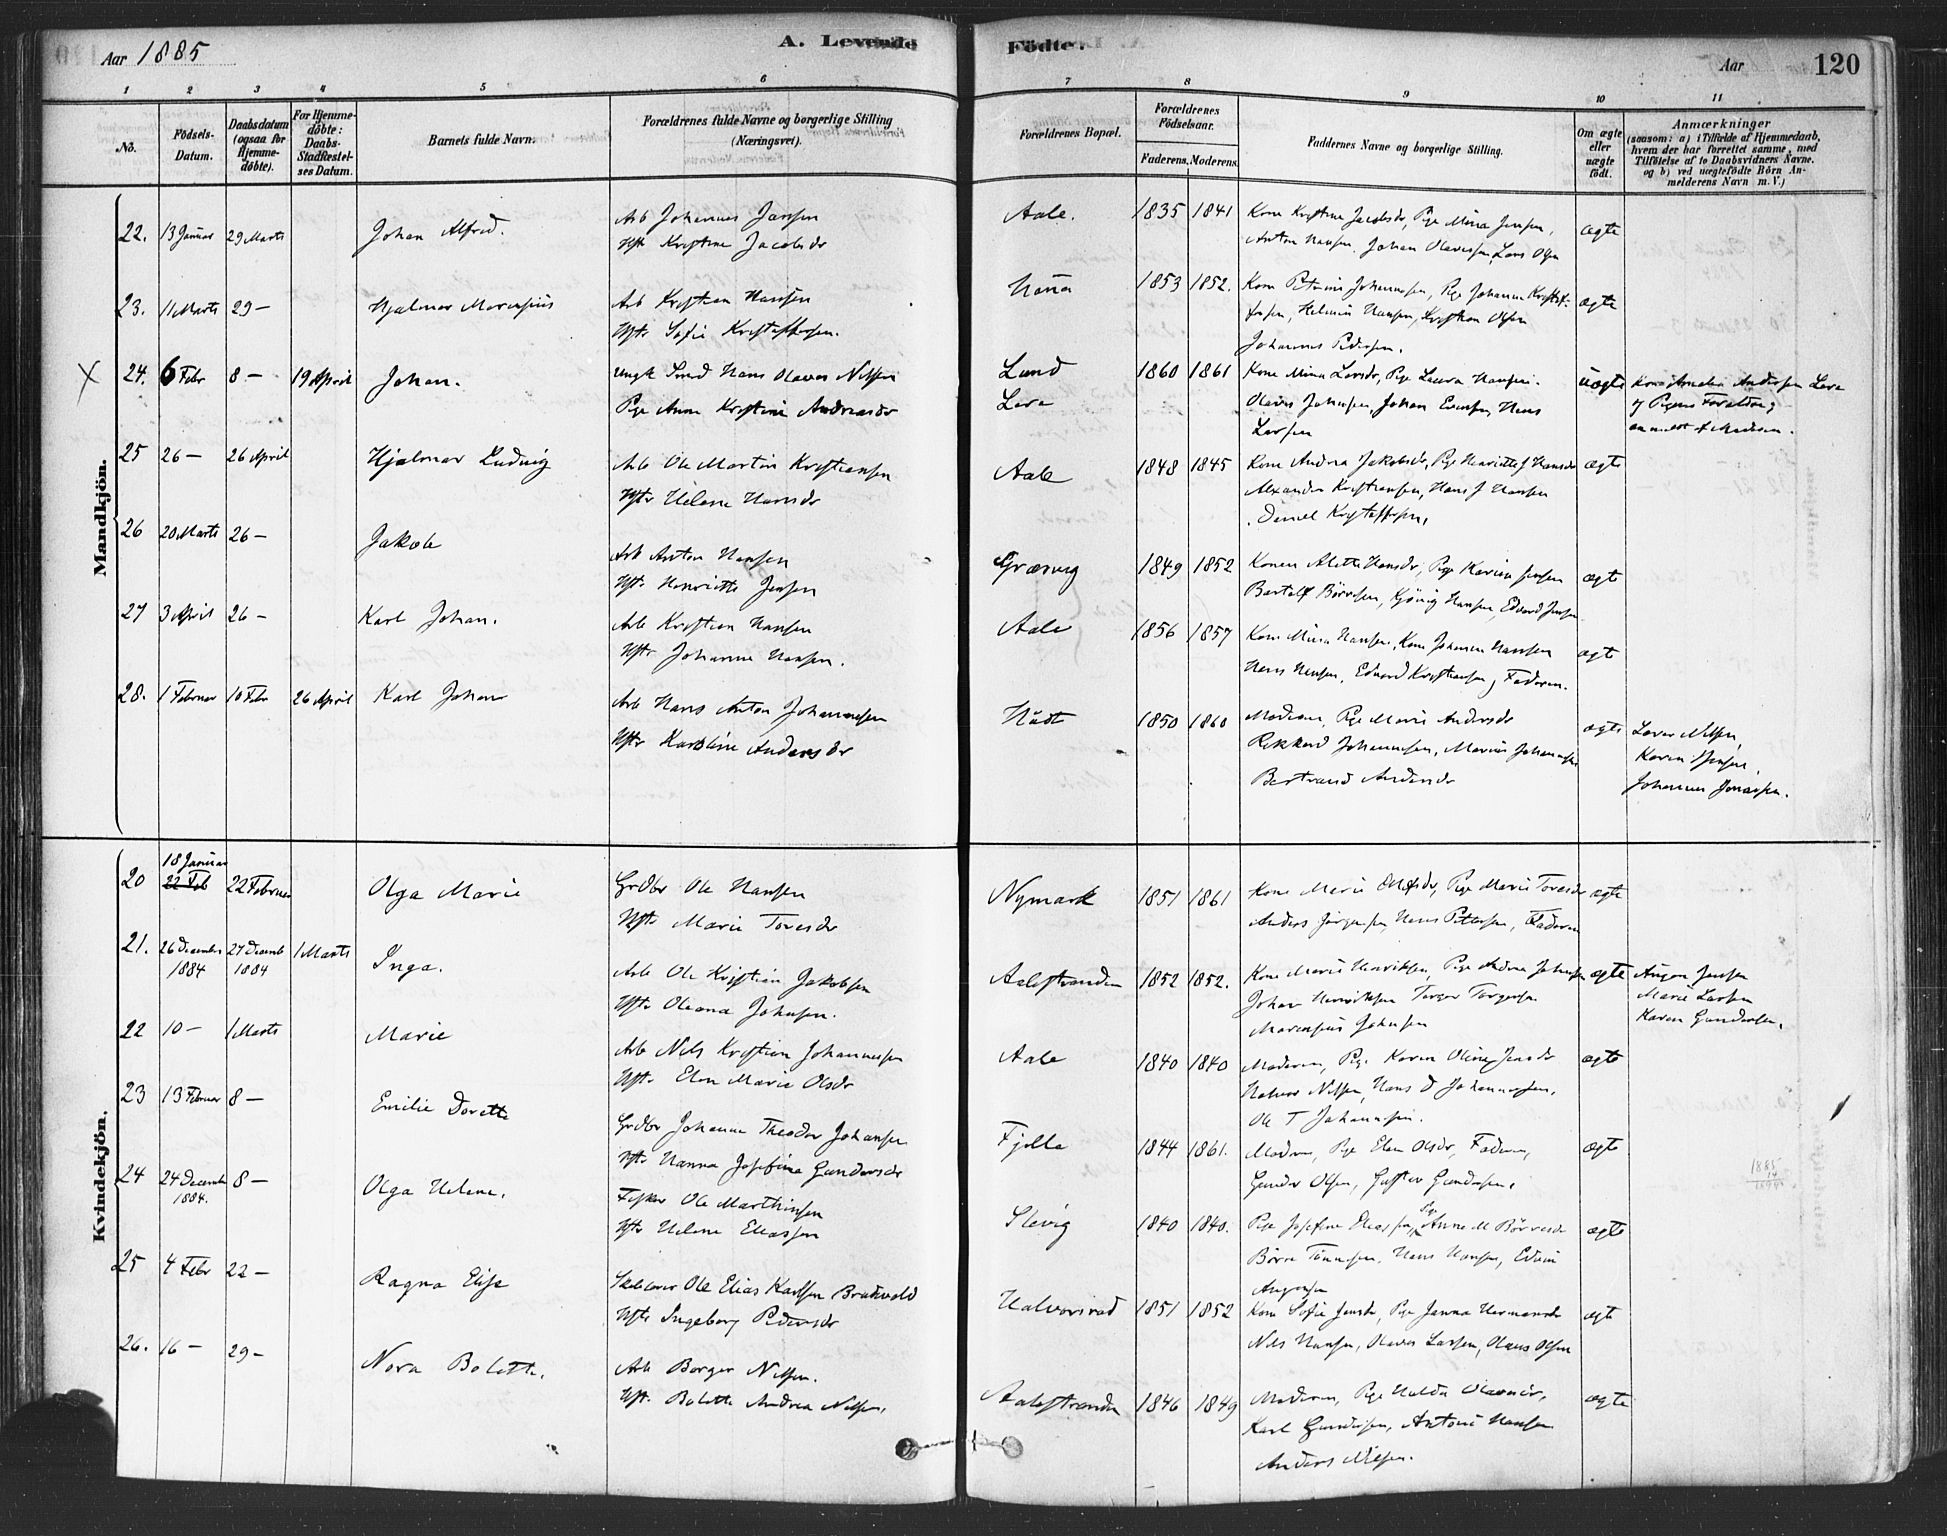 Aar 1885
A. Levende
Födte.
Aar
120
1 2 3 4 5 6 7 8 9 10 11
No.
Födsels-
Datum.
Daabsdatum
(ogsaa for
Hjemme-
döbte).
For Hjemme-
döbte:
Daabs-
Stadfæstel-
ses Datum.
Barnets fulde Navn.
Forældrenes fulde Navne og borgerlige Stilling
(Næringsvei).
Forældrenes Bopæl.
Forældrenes
Födselsaar.
Faderens. Moderens.
Faddernes Navne og borgerlige Stilling.
Om ægte
eller
uægte
födt.
Anmærkninger
(saasom: a) i Tilfælde af Hjemmedaab,
hvem der har forrettet samme, med
Tilföielse af to Daabsvidners Navne.
og b) ved uægtefödte Börn An-
melderens Navn m. V.)
Mandkjön.
22. 13 Januar 29 Marts Johan Alfred.
Arb Johannes Jansen
Hst Kristine Jacobsdr
Aale. 1835 1841
Kone Kristine Jacobsdr, Pige Mina Jensen,
Anton Hansen, Johan Olavessen, Lars Olsen
ægte
23. 11 Marts 29 — Hjalmar Marensius
Arb Kristian Hansen
Hst. Sofie Kristoffersen.
1853 1852.
Johannes Pedersen.
ægte
24. 6 Febr 8 — 19 April Johan.
Ungk Smed Hans Olaves Nilsen
Pige Anne Kristine Andreasdr
Lund
Lere
1860 1861
Kone Mina Larsdr, Pige Laura Hansen.
Olaves Johnsen, Johan Evensen, Hans
Larsen
uægte
Kone Amalia Andersen Lere
og Pigens Forældre;
anmeldt af Moderen.
25 26 — 26 April Hjalmar Ludvig
Arb Ole Martin Kristiansen
Hst. Helene Hansdr
Aale 1848 1845
Kone Andrea Jakobsdr, Pige Henriette J Hansdr
Alexander Kristiansen, Hans J Hansen
Daniel Kristoffersen,
ægte
26 20 Marts 26 — Jakob
Arb Anton Hansen
Hst. Henriette Jensen
Græsvig 1849 1852
Konen Alette Hansdr, Pige Karine Jensen
Bartolf Börresen, Kjönig Hansen, Edvard Jensen
ægte
27 3 April 26 — Karl Johan.
Arb Kristian Hansen
Hst. Johanne Hansen.
Aale 1856 1857
Kone Mina Hansen, Kone Johanne Hansen
Hans Hansen, Edvard Kristiansen, Faderen.
ægte
28. 1 Februar 10 Febr 26 April Karl Johan
Arb Hans Anton Johannesen
Hstr Karoline Andersdr
1850 1860
Moderen, Pige Marie Andersdr
Rikkard Johannesen, Marius Johannesen
ægte
Karen Jensen,
Johannes Jonassen.
Kvindekjön.
20 18 Januar
22 Feb
22 Februar Olga Marie
Grdbr Ole Hansen
Hst. Marie Toresdr
Nymark 1851 1861
Kone Marie Olufsdr, Pige Marie Toresdr
Anders Jörgensen, Hans Pettersen, Faderen
ægte
21. 26 December
1884
27 Decemb
1884
1 Marts Inga.
Arb Ole Kristian Jakobsen
Hst. Oleana Johnsen.
Aalestranden 1852 1852.
Kone Marie Henriksen, Pige Andrea Johnsen
Johan Henriksen Torger Torgersen
Marensius Johnsen
ægte
Marie Larsen
Karen Gundersen.
22 10 — 1 Marts Marie
Arb Nils Kristian Johannesen
Hst. Elen Marie Olsdr
Aale 1840 1840
Moderen, Pige Karen Oline Jensdr
Halvor Nilsen, Hans D Johannesen,
Ole T Johannesen.
ægte
23 13 Februar 8 — Emilie Dorette
Grdbr Johanne Theodor Johansen
Hst. Hanna Josefine Gundersdr
Fjelle 1844 1861.
Moderen, Pige Elen Olsdr, Faderen,
Gunder Olsen, Gustav Gundersen,
ægte
1885
14
24 24 Decemb
1884.
8 — Olga Helene.
Fisker Ole Marthinsen
Hst. Helene Eliassen
Slevig 1840 1840.
Pige Josefine Eliassen, Pige Anne M Börresdr
Börre Tönnesen, Hans Hansen, Edvin
Augersen
ægte
25 4 Febr 22 — Ragna Elise
Ole Elias Karlsen Brudevold
Hst. Ingeborg Pedersdr
Halvorsrød 1851 1852
Kone Sofie Jensdr, Pige Janna Hermansdr
Nils Hansen, Olaves Larsen, Olaus Olsen
ægte
26. 16 — 29 — Nora Bolette.
Arb Borger Nilsen.
Hst. Bolette Andrea Nilsen,
Aalestranden 1846 1849
Moderen, Pige Hulda Olavesdr,
Karl Gundersen, Antoni Hansen
Anders Nilsen.
ægte